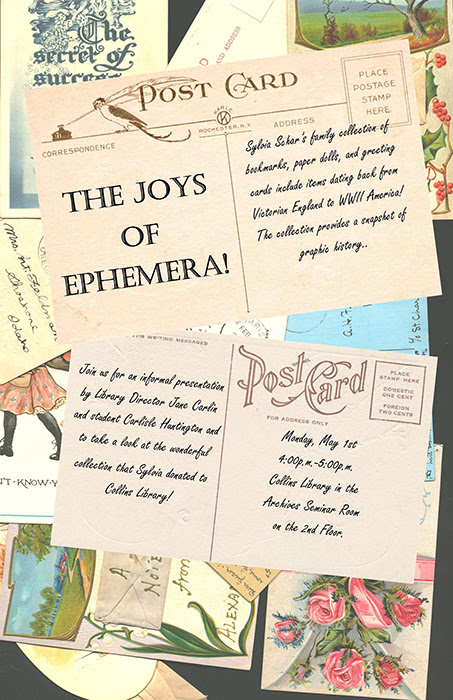 The
secret of
success
AND ADDRESS
POST CARD
PLACE
POSTAGE
STAMP
HERE
K
ROCHESTER, N.Y.
CORRESPONDENCE
ADDRESS
THE JOYS
OF
EPHEMERA!
Sylvia Schar's family collection of
bookmarks, paper dolls, and greeting
cards include items dating back from
Victorian England to WWII America!
The collection provides a snapshot of
graphic history..
FOR WRITING MESSAGES
Post Card
PLACE
STAMP HERE
DOMESTIC
ONE CENT
FOREIGN
TWO CENTS
FOR ADDRESS ONLY
Join us for an informal presentation
by Library Director Jane Carlin
and student Carlisle Huntington and
to take a look at the wonderful
collection that Sylvia donated to
Collins Library!
Monday, May 1st
4:00p.m.-5:00p.m.
Collins Library in the
Archives Seminar Room
on the 2nd Floor.
Idaho
'T-KNOW-Y
A
NOTE
From
ALEXA